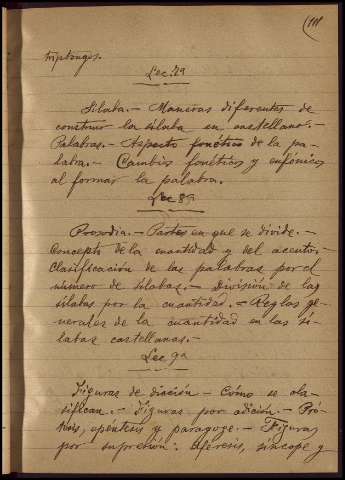 triptongos.
Lec. 7ª
Sílaba.- Maneras diferentes de
construir la sílaba en castellano.-
Palabras.- Aspecto fonético de la pa-
labra.- Cambios fonéticos y eufónicos
al formar la palabra.
Lec. 8ª
Prosodia.- Partes en que se divide.-
Concepto de la cuantidad y del acento.-
Clasificación de las palabras por el
número de sílabas.- División de las
sílabas por la cuantidad.- Reglas ge-
nerales de la cuantidad en las sí-
labas castellanas.-
Lec. 9ª
Figuras de dicción.- Cómo se cla-
sifican.- Figuras por adición.- Pró-
tesis, epéntesis y paragoge.- Figuras
por supresión: aféresis, síncope y